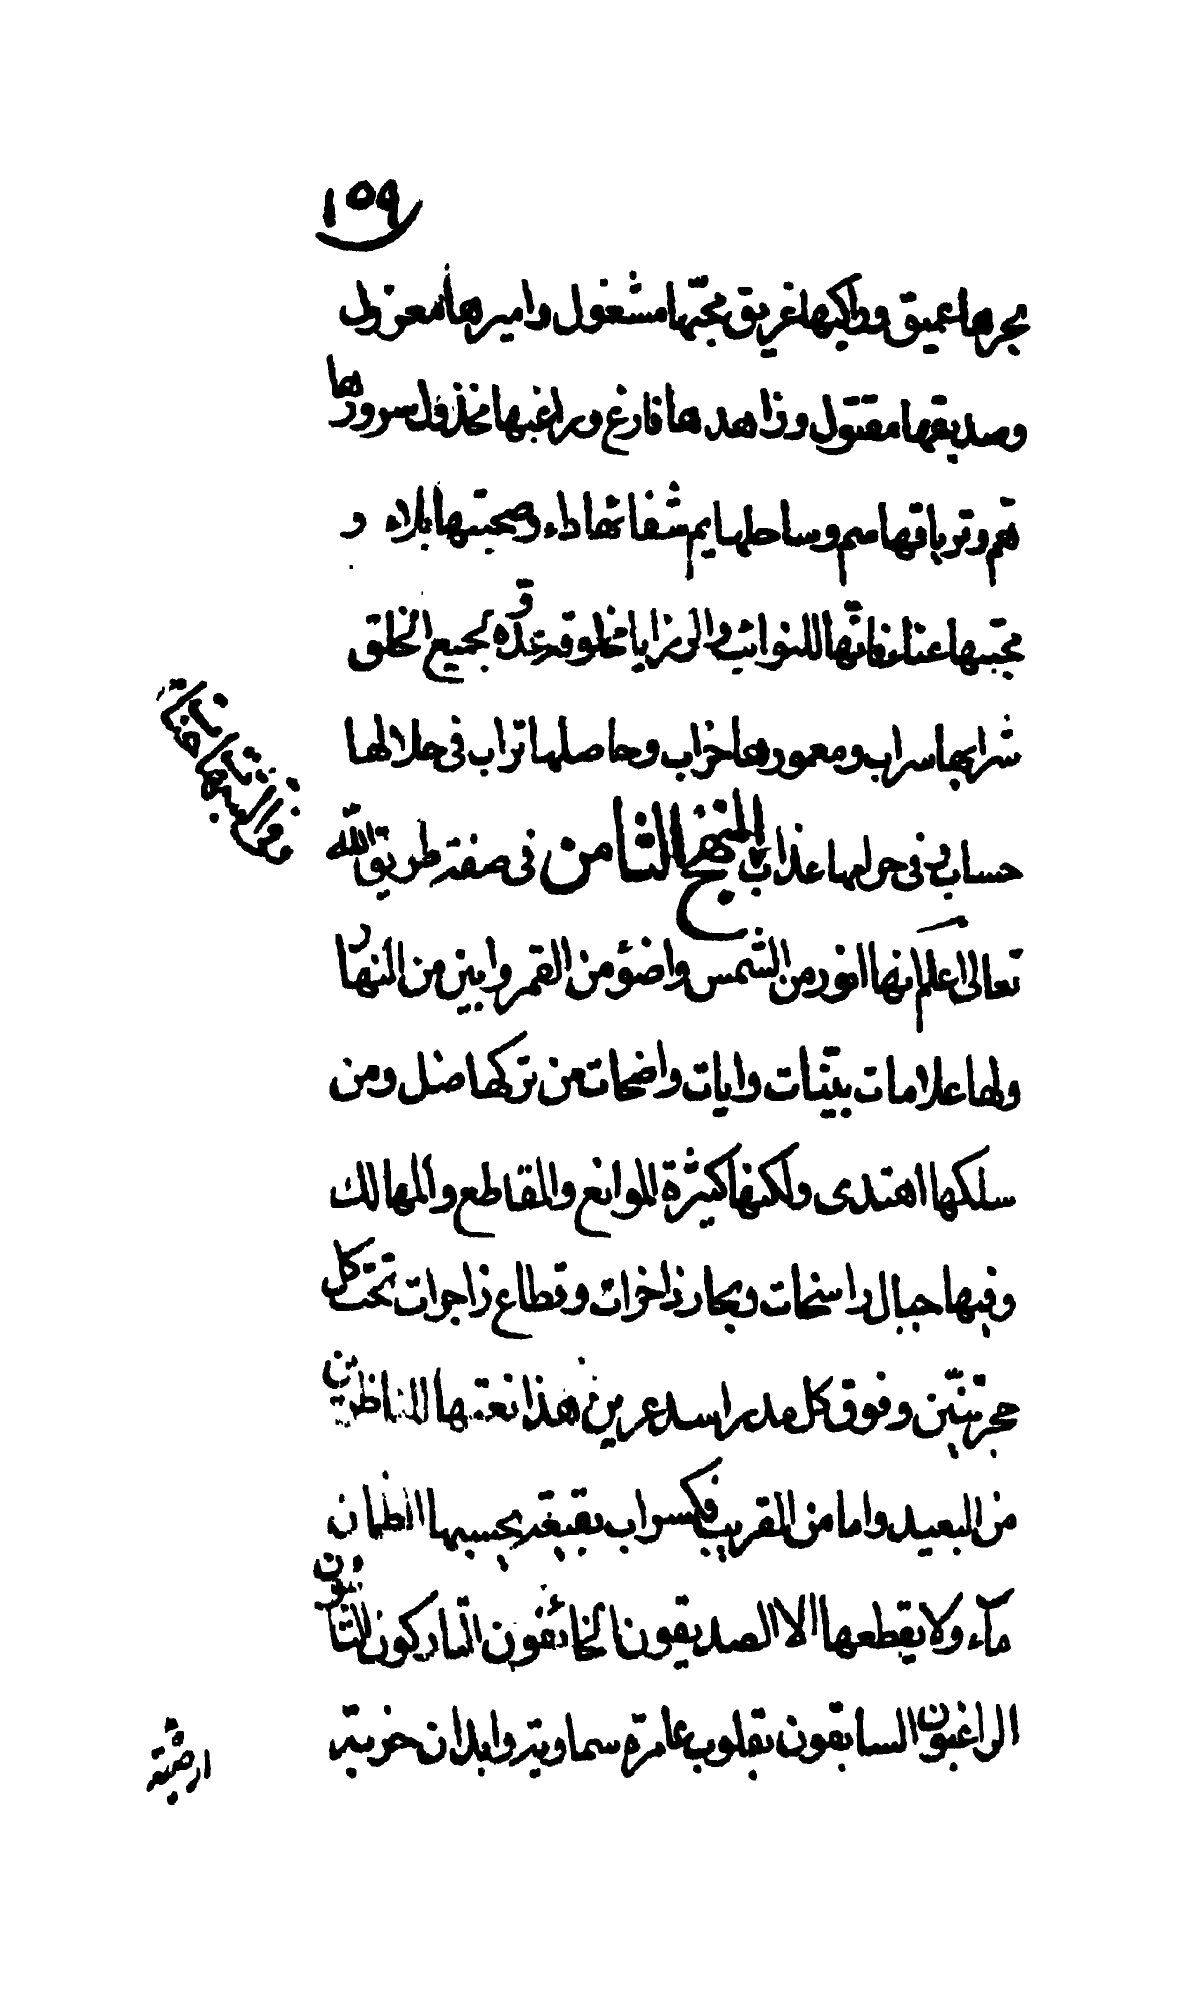 ١٥٩
بحرها عميق وراكبها غريق محبّها مشغول واميرها معزول
وصديقها مقتول وزاهدها فارغ وراغبها مخذول سرورها
هم وترياقها سم وساحلها يم شفائها داء وصحبتها بلاء و
محبتها عناء فانّها للنوائب والرزايا مخلوقة وغدة لجميع الخلق
شرابها سراب ومعمورها خراب وحاصلها تراب في حلالها
حساب وفي حرامها عذاب المنهج الثامن في صفة طريق الله
تعالى اعلم انها انور من الشمس واضوٴ من القمر وابين من النهار
ولها علامات بيّنات وايات واضحات من تركها ضل ومن
سلكها اهتدى ولكنها كثيرة الموانع والمقاطع والمهالك
وفيها جبال راسخات وبحار ذاخرات وقطاع زاجرات تحت كل
حجر تنّين وفوق كل مدر اسد عرين هذا نعتها للناظرين
من البعيد واما من القريب فكسراب بقيعة يحسبها الظمان
ماء ولا يقطعها الا الصديقون الخائفون التاركون التائبون
الراغبون السابقون بقلوب عامرة سماوية وابدان خربة
ارضية